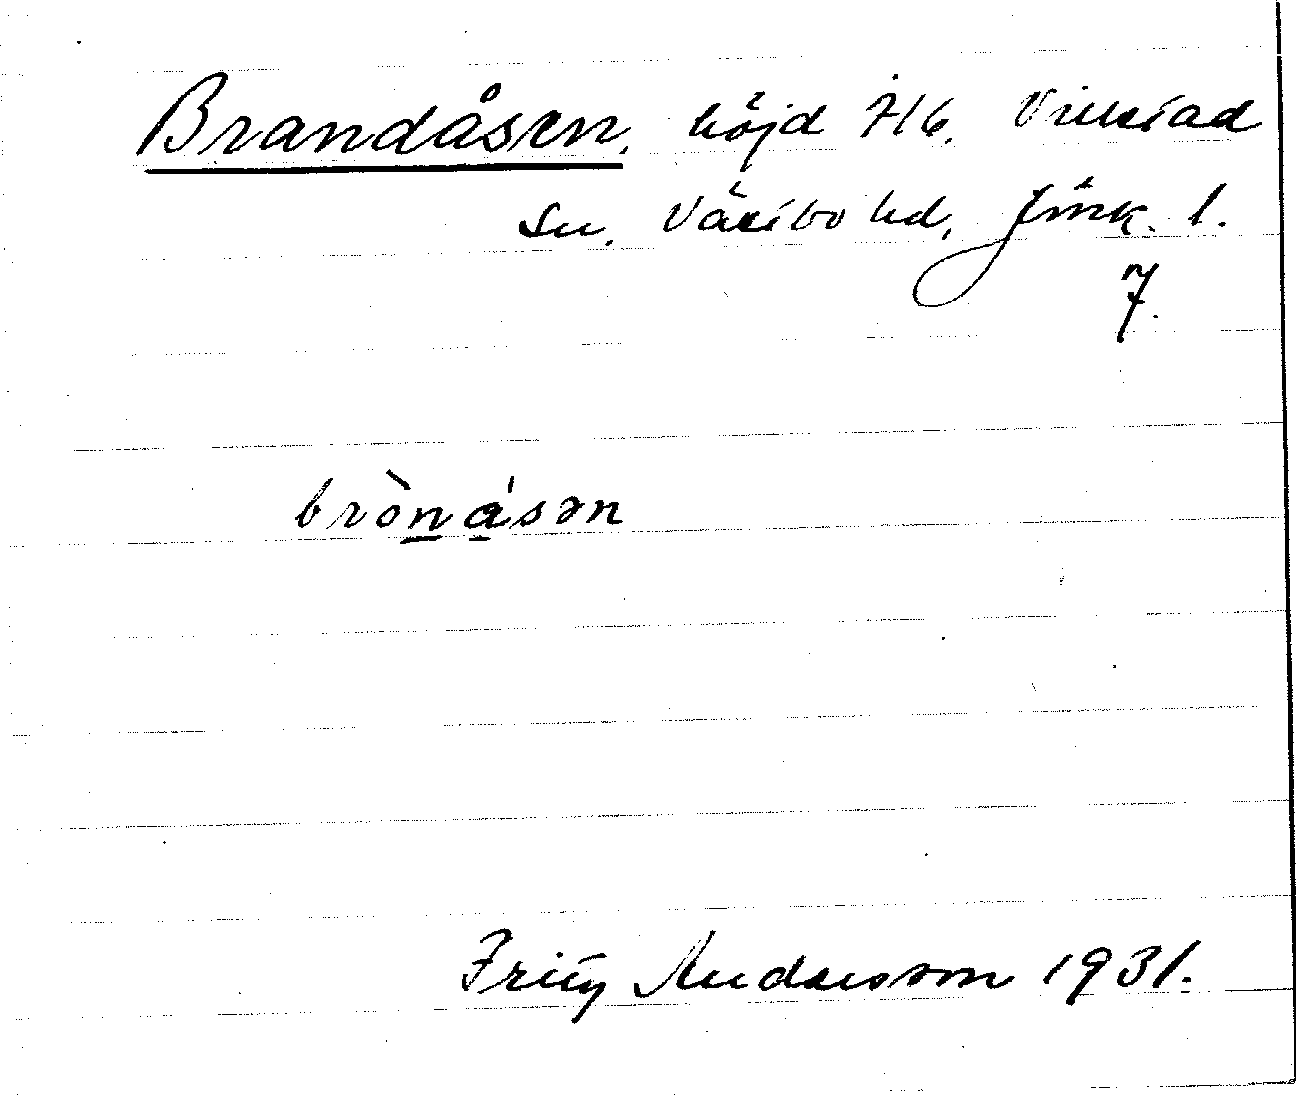 Brandåsen, höjd 7/6, Villstad
sn, Västbo hd, Jönk. l.
7.
brònásən
Fritz Andersson 1931.